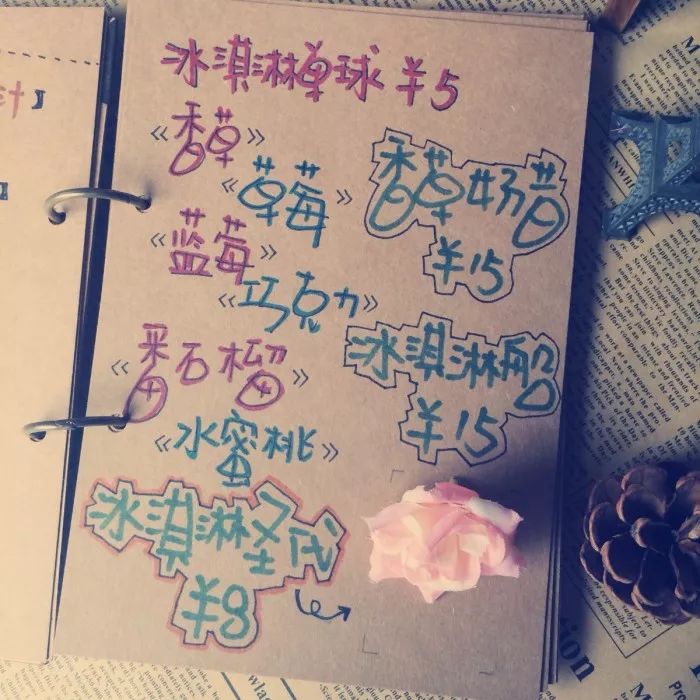 冰淇淋单球 ¥5
《香草》
《草莓》
《蓝莓》
《巧克力》
《番石榴》
《水蜜桃》
冰淇淋圣代
¥8
香草奶昔
¥15
冰淇淋船
¥15
计】